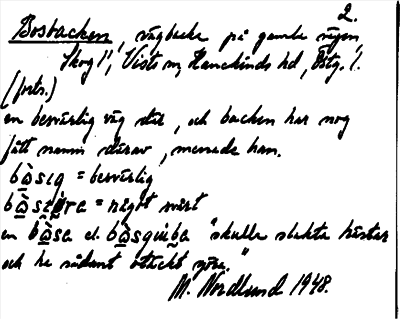 2.
Bosbacken, vägbacke på gamla vägen,
Skog 1¹, Vists sn, Hanekinds hd, Östg. l.
(forts.)
en besvärlig väg där, och backen har nog
fått namn därav, menade han.
= besvärlig
= något svårt
en el. "skulle slakta hästar
och he sådant otäckt göra."
M. Nordlund 1948.